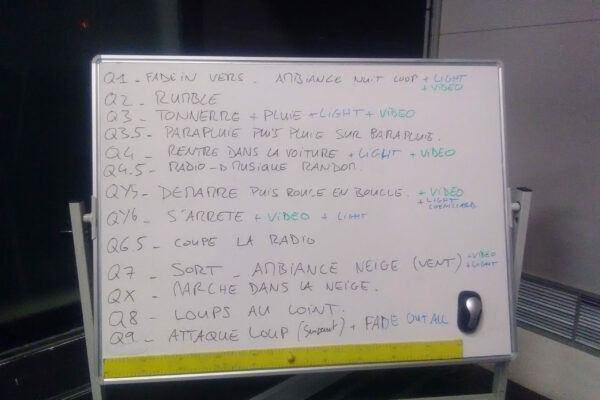 Q1 - FADE IN VERS - AMBIANCE NUIT LOOP + LIGHT
+ VIDEO
Q2 - RUMBLE
Q3 - TONNERRE + PLUIE + LIGHT + VIDEO
Q3.5 - PARAPLUIE PUIS PLUIE SUR PARAPLUIE.
Q4 - RENTRE DANS LA VOITURE + LIGHT + VIDEO
Q4.5 - RADIO - MUSIQUE RANDOM.
- DEMARRE PUIS ROULE EN BOUCLE. + VIDEO
+ LIGHT
- S'ARRETE + VIDEO + LIGHT
Q6.5 - COUPE LA RADIO
Q7 - SORT - AMBIANCE NEIGE (VENT) + VIDEO
+ LIGHT
QX - MARCHE DANS LA NEIGE.
Q8 - LOUPS AU LOINT.
Q9 - ATTAQUE LOUP + FADE OUT ALL